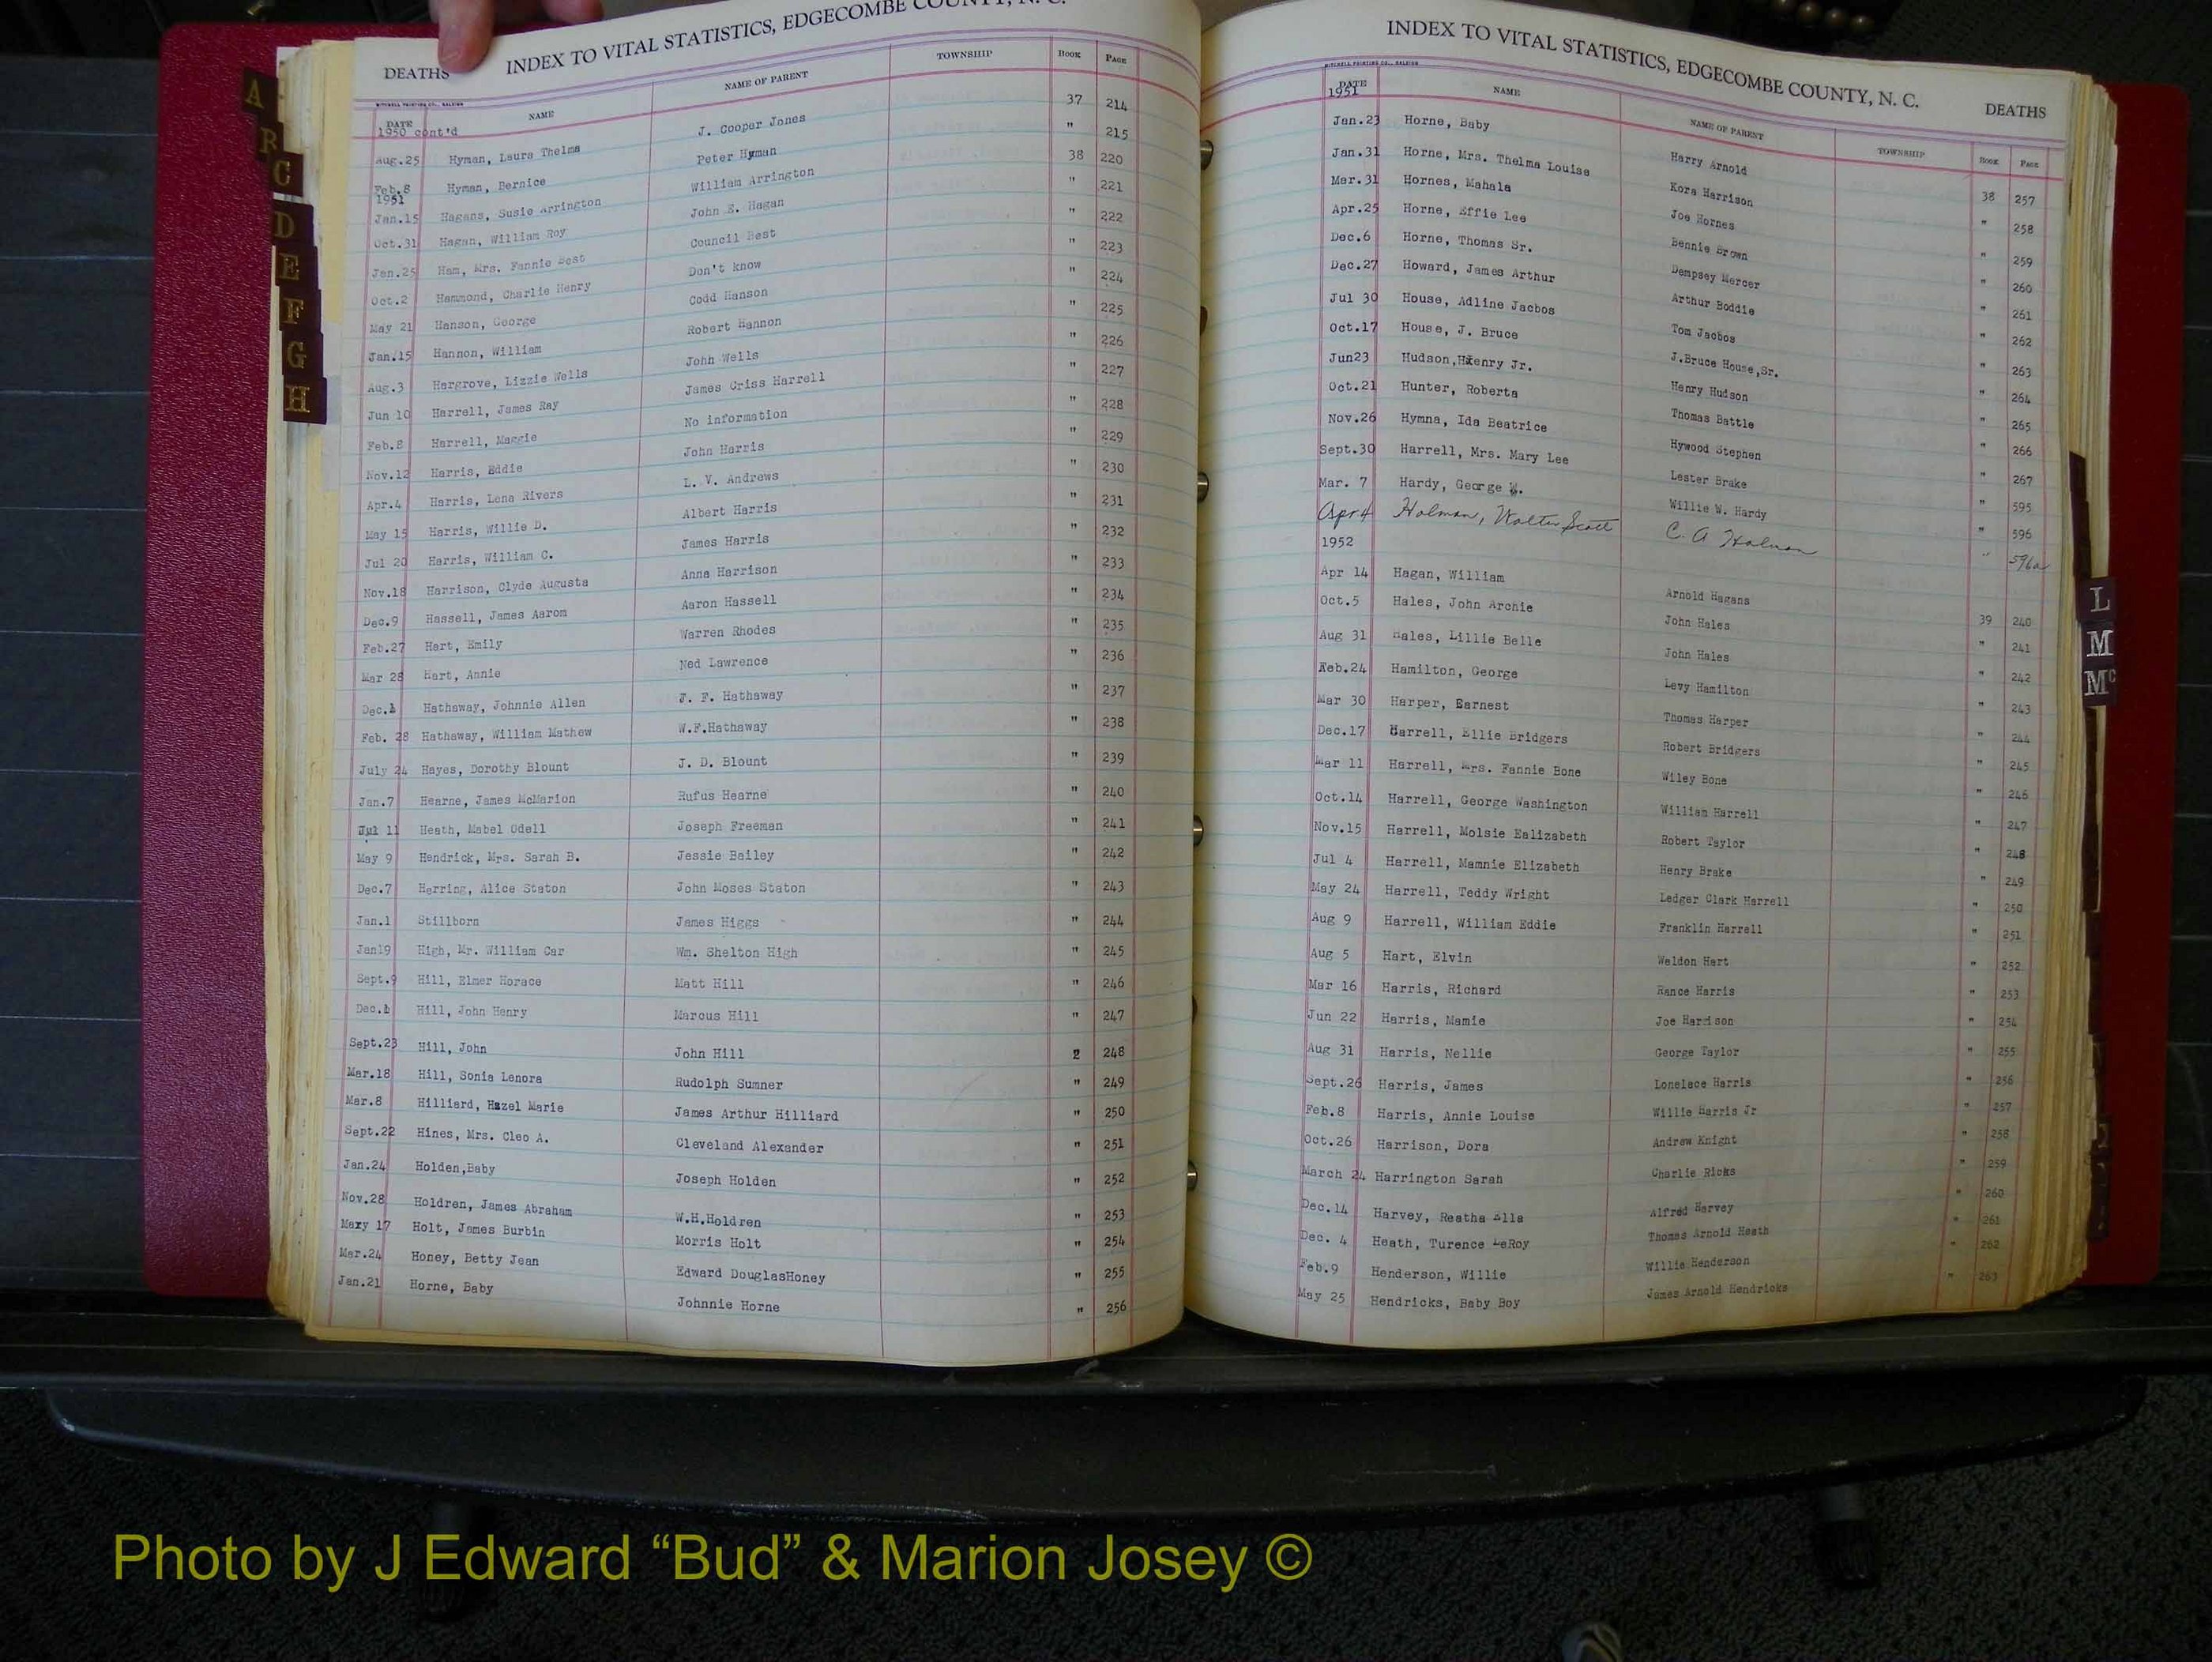 INDEX TO VITAL STATISTICS, EDGECOMBE COUNTY, N. C.
DEATHS
MITCHELL PRINTING CO., RALEIGH
DATE NAME NAME OF PARENT TOWNSHIP BOOK PAGE
1950 cont'd
Aug.25 Hyman, Laura Thelma J. Cooper Jones 37 214
Feb.8 Hyman, Bernice Peter Hyman " 215
1951
Jan.15 Hagans, Susie Arrington William Arrington 38 220
Oct.31 Hagan, William Roy John E. Hagan " 221
Jan.25 Ham, Mrs. Fannie Best Council Best " 222
Oct.2 Hammond, Charlie Henry Don't know " 223
May 21 Hanson, George Codd Hanson " 224
Jan.15 Hannon, William Robert Hannon " 225
Aug.3 Hargrove, Lizzie Wells John Wells " 226
Jun 10 Harrell, James Ray James Criss Harrell " 227
Feb.8 Harrell, Maggie No information " 228
Nov.12 Harris, Eddie John Harris " 229
Apr.4 Harris, Lena Rivers L. V. Andrews " 230
May 15 Harris, Willie D. Albert Harris " 231
Jul 20 Harris, William C. James Harris " 232
Nov.18 Harrison, Clyde Augusta Anna Harrison " 233
Dec.9 Hassell, James Aarom Aaron Hassell " 234
Feb.27 Hart, Emily Warren Rhodes " 235
Mar 28 Hart, Annie Ned Lawrence " 236
Dec.1 Hathaway, Johnnie Allen J. F. Hathaway " 237
Feb. 28 Hathaway, William Mathew W.F.Hathaway " 238
July 24 Hayes, Dorothy Blount J. D. Blount " 239
Jan.7 Hearne, James McMarion Rufus Hearne " 240
Jul 11 Heath, Mabel Odell Joseph Freeman " 241
May 9 Hendrick, Mrs. Sarah B. Jessie Bailey " 242
Dec.7 Herring, Alice Staton John Moses Staton " 243
Jan.1 Stillborn James Higgs " 244
Jan19 High, Mr. William Car Wm. Shelton High " 245
Sept.9 Hill, Elmer Horace Matt Hill " 246
Dec.1 Hill, John Henry Marcus Hill " 247
Sept.23 Hill, John John Hill 2 248
Mar.18 Hill, Sonia Lenora Rudolph Sumner " 249
Mar.8 Hilliard, Hazel Marie James Arthur Hilliard " 250
Sept.22 Hines, Mrs. Cleo A. Cleveland Alexander " 251
Jan.24 Holden,Baby Joseph Holden " 252
Nov.28 Holdren, James Abraham W.H.Holdren " 253
Maxy 17 Holt, James Burbin Morris Holt " 254
Mar.24 Honey, Betty Jean Edward DouglasHoney " 255
Jan.21 Horne, Baby Johnnie Horne " 256
A
R
C
D
E
F
G
H
INDEX TO VITAL STATISTICS, EDGECOMBE COUNTY, N. C.
DEATHS
MITCHELL PRINTING CO., RALEIGH
DATE NAME NAME OF PARENT TOWNSHIP BOOK PAGE
1951
Jan.23 Horne, Baby Harry Arnold 38 257
Jan.31 Horne, Mrs. Thelma Louise Kora Harrison " 258
Mar.31 Hornes, Mahala Joe Hornes " 259
Apr.25 Horne, Effie Lee Bennie Brown " 260
Dec.6 Horne, Thomas Sr. Dempsey Mercer " 261
Dec.27 Howard, James Arthur Arthur Boddie " 262
Jul 30 House, Adline Jacbos Tom Jacbos " 263
Oct.17 House, J. Bruce J.Bruce House,Sr. " 264
Jun23 Hudson,Henry Jr. Henry Hudson " 265
Oct.21 Hunter, Roberta Thomas Battle " 266
Nov.26 Hymna, Ida Beatrice Hywood Stephen " 267
Sept.30 Harrell, Mrs. Mary Lee Lester Brake " 595
Mar. 7 Hardy, George W. Willie W. Hardy " 596
Apr 4 Holman, Walter Scott C. A Holman " 596a
1952
Apr 14 Hagan, William Arnold Hagans 39 240
Oct.5 Hales, John Archie John Hales " 241
Aug 31 Hales, Lillie Belle John Hales " 242
Feb.24 Hamilton, George Levy Hamilton " 243
Mar 30 Harper, Earnest Thomas Harper " 244
Dec.17 Harrell, Ellie Bridgers Robert Bridgers " 245
Mar 11 Harrell, Mrs. Fannie Bone Wiley Bone " 246
Oct.14 Harrell, George Washington William Harrell " 247
Nov.15 Harrell, Molsie Ealizabeth Robert Taylor " 248
Jul 4 Harrell, Mamnie Elizabeth Henry Brake " 249
May 24 Harrell, Teddy Wright Ledger Clark Harrell " 250
Aug 9 Harrell, William Eddie Franklin Harrell " 251
Aug 5 Hart, Elvin Weldon Hart " 252
Mar 16 Harris, Richard Rance Harris " 253
Jun 22 Harris, Mamie Joe Harrison " 254
Aug 31 Harris, Nellie George Taylor " 255
Sept.26 Harris, James Lonelace Harris " 256
Feb.8 Harris, Annie Louise Willie Harris Jr " 257
Oct.26 Harrison, Dora Andrew Knight " 258
March 24 Harrington Sarah Charlie Ricks " 259
Dec.14 Harvey, Reatha Ella Alfred Harvey " 260
Dec. 4 Heath, Turence LeRoy Thomas Arnold Heath " 261
Feb.9 Henderson, Willie Willie Henderson " 262
May 25 Hendricks, Baby Boy James Arnold Hendricks " 263
L
M
Mc
Photo by J Edward “Bud” & Marion Josey ©